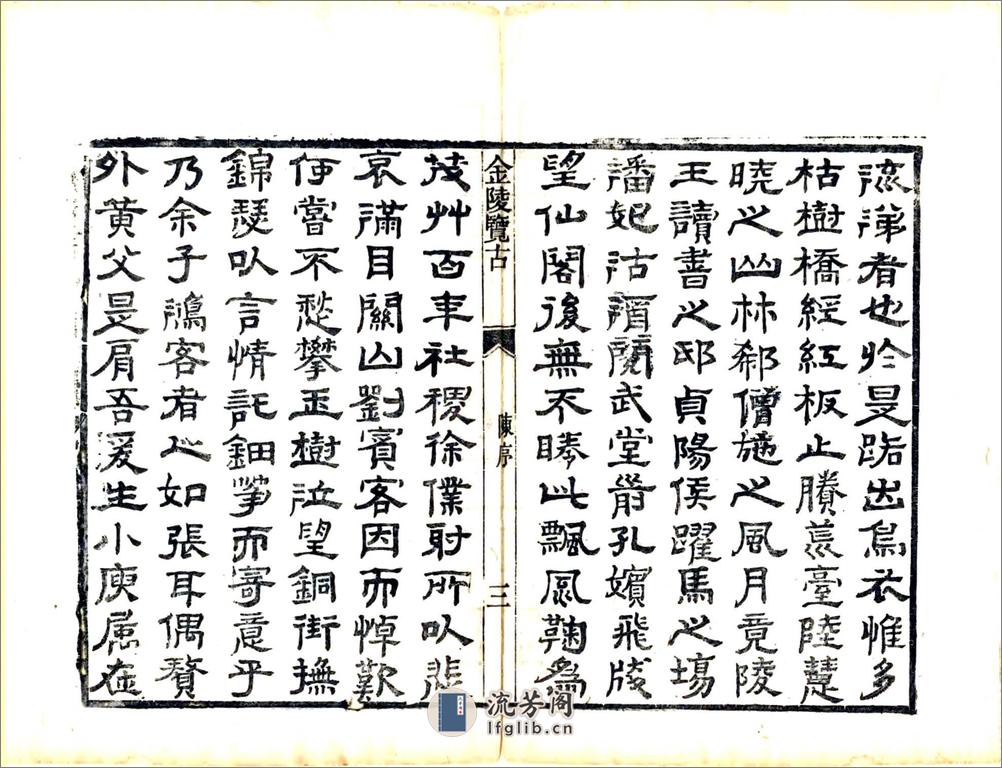 流涕者也於是路出烏衣惟多
枯樹橋經紅板止賸荒臺陸慧
曉之山林郗僧施之風月竟陵
王讀書之邸貞陽侯躍馬之場
潘妃沽酒閱武堂前孔嬪飛牋
望仙閣後無不睠此飄風鞠爲
金陵覽古 陳序 三
茂艸百年社稷徐僕射所以悲
哀滿目關山劉賓客因而悼歎
何嘗不愁攀玉樹泣望銅街撫
錦瑟以言情託鈿箏而寄意乎
乃余子鴻客者心如張耳偶贅
外黃父是肩吾爰生小庾居在
流芳阁
lfglib.cn